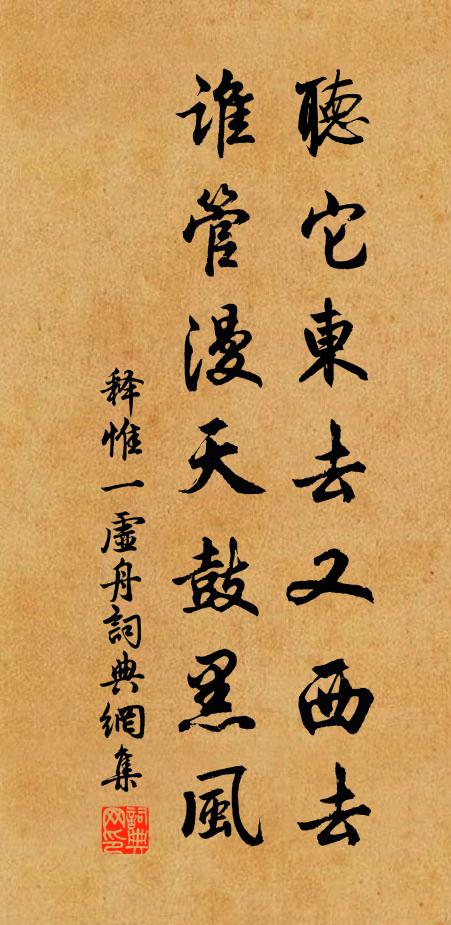 聽它東去又西去
誰管漫天鼓黑風
释惟一虛舟詞典網集
詞典网印